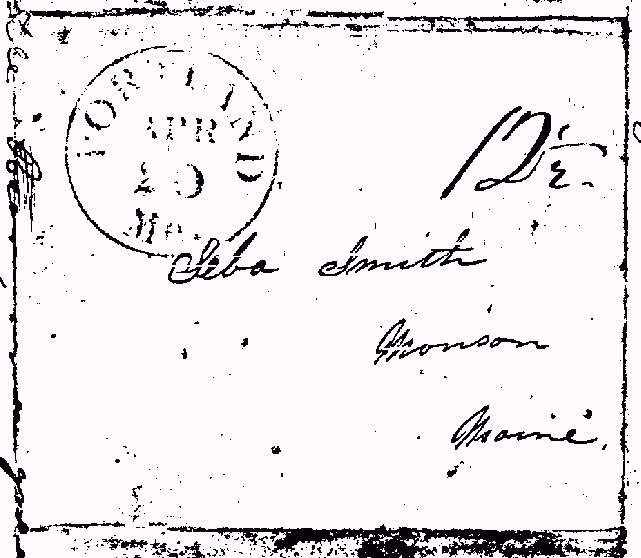 PORTLAND
APR
20
Me.
12½
Seba Smith
Monson
Maine.